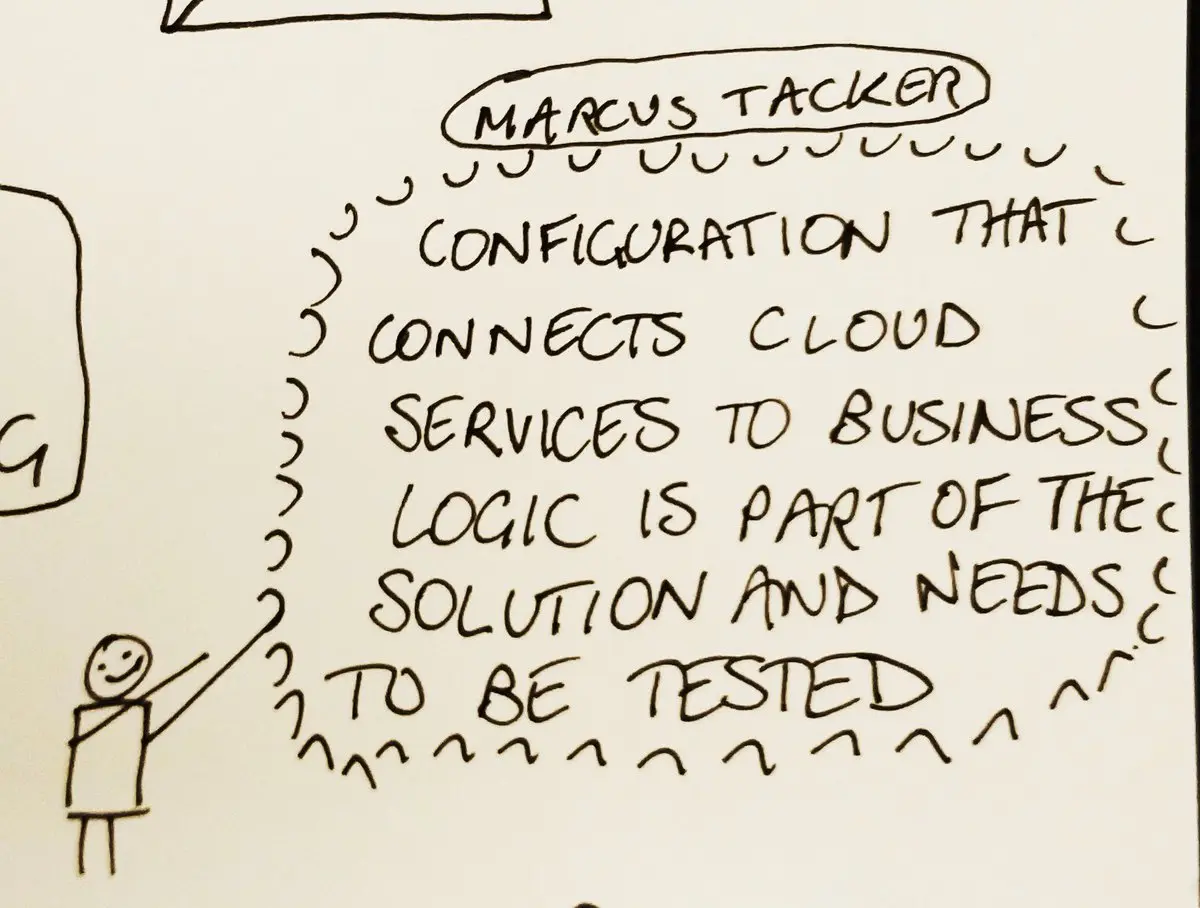 MARCUS TACKER
CONFIGURATION THAT
CONNECTS CLOUD
SERVICES TO BUSINESS
G
LOGIC IS PART OF THE
SOLUTION AND NEEDS
TO BE TESTED